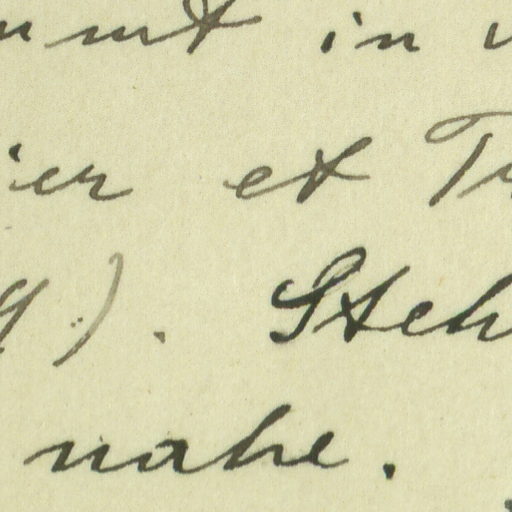 mmt in
ier et
). Steh
nahe.